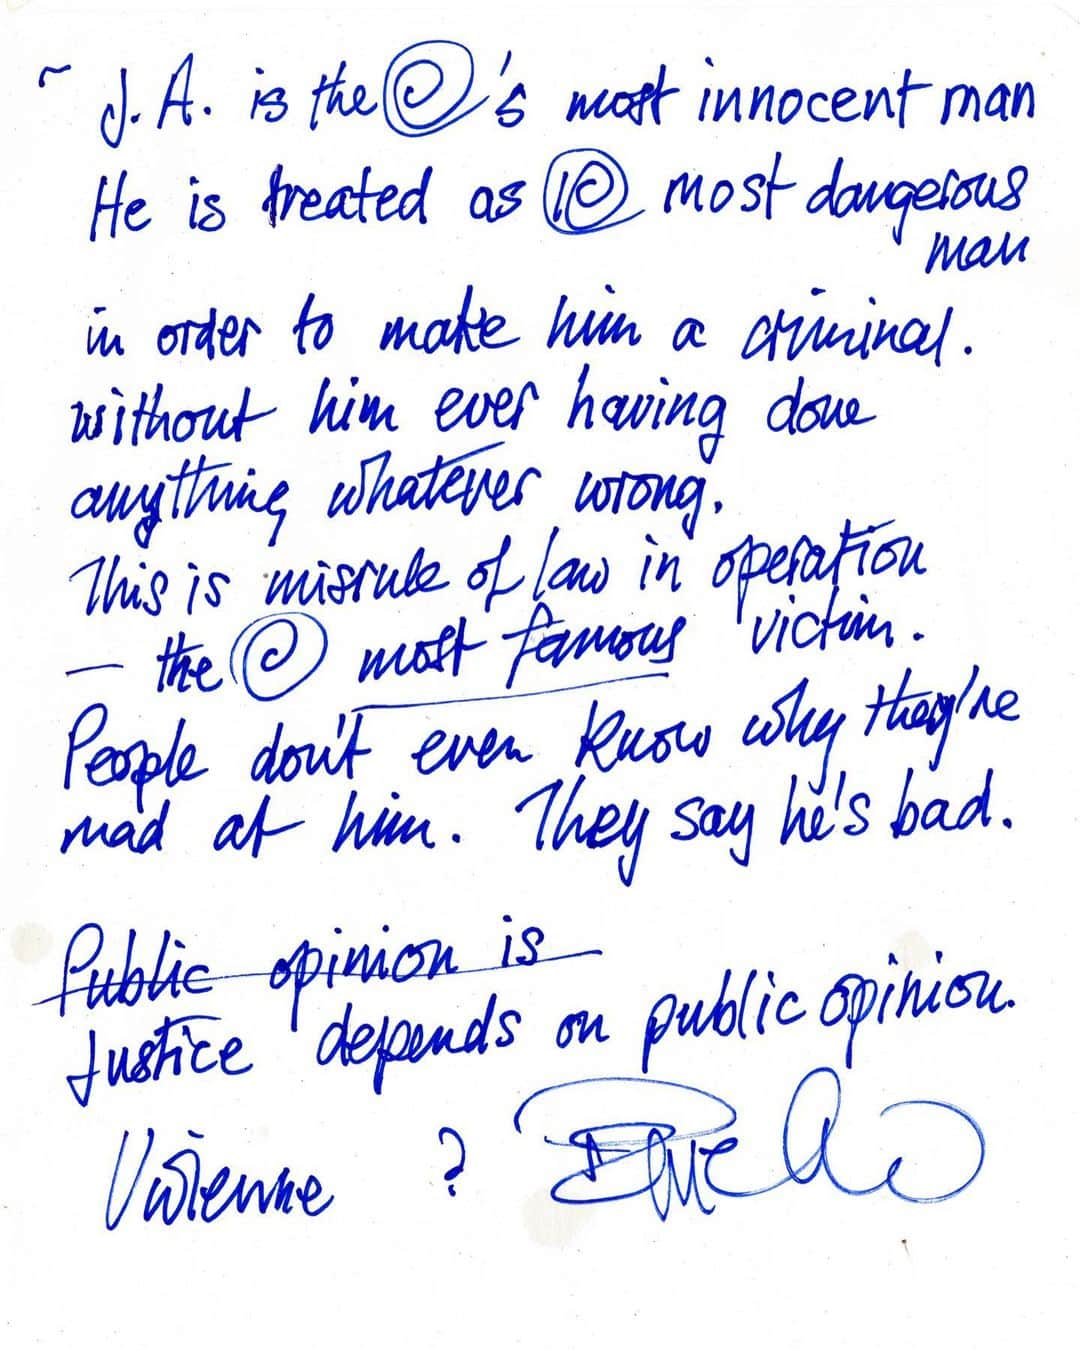 ~ J. A. is the 's most innocent man
He is treated as most dangerous
man
in order to make him a criminal.
without him ever having done
anything whatever wrong.
This is misrule of law in operation
— the most famous victim.
People don't even know why they're
mad at him. They say he's bad.
Public opinion is
Justice depends on public opinion.
Vivienne ?